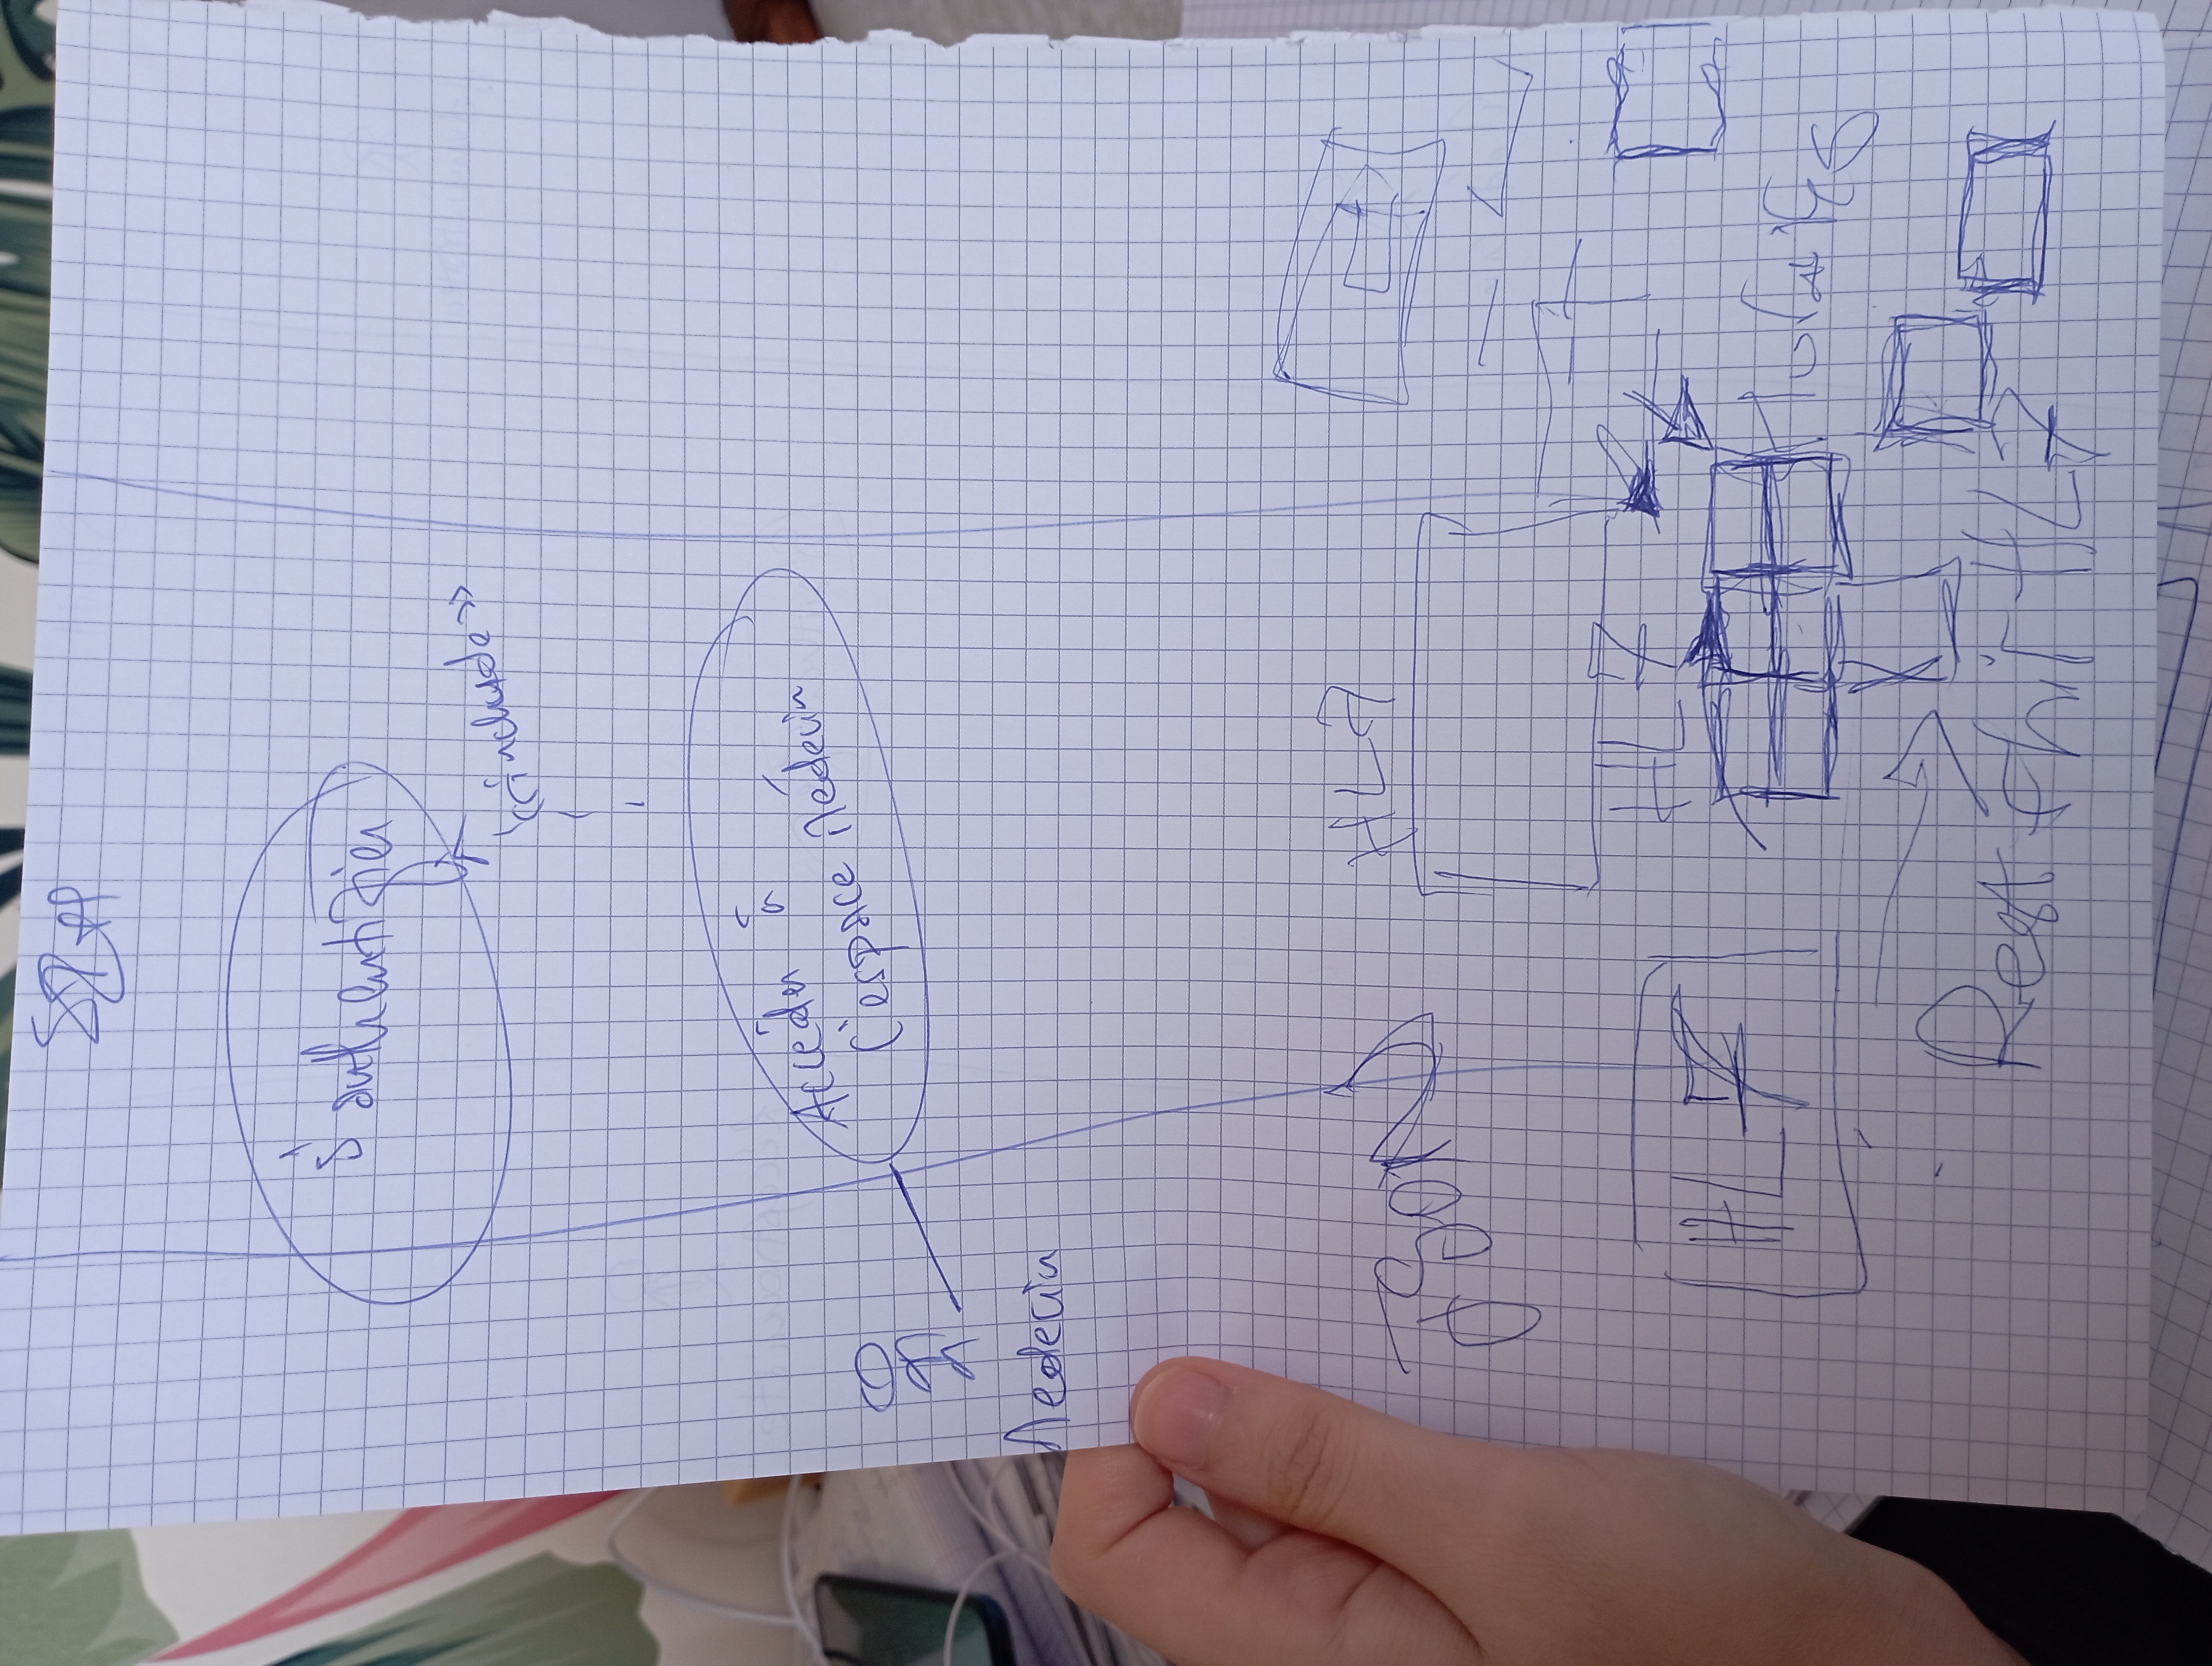 S'authentifier
<<include>>
Accéder à
l'espace Médecin
Medecin
HL7
JSON
HL7
HL7
Rest fhir HL7